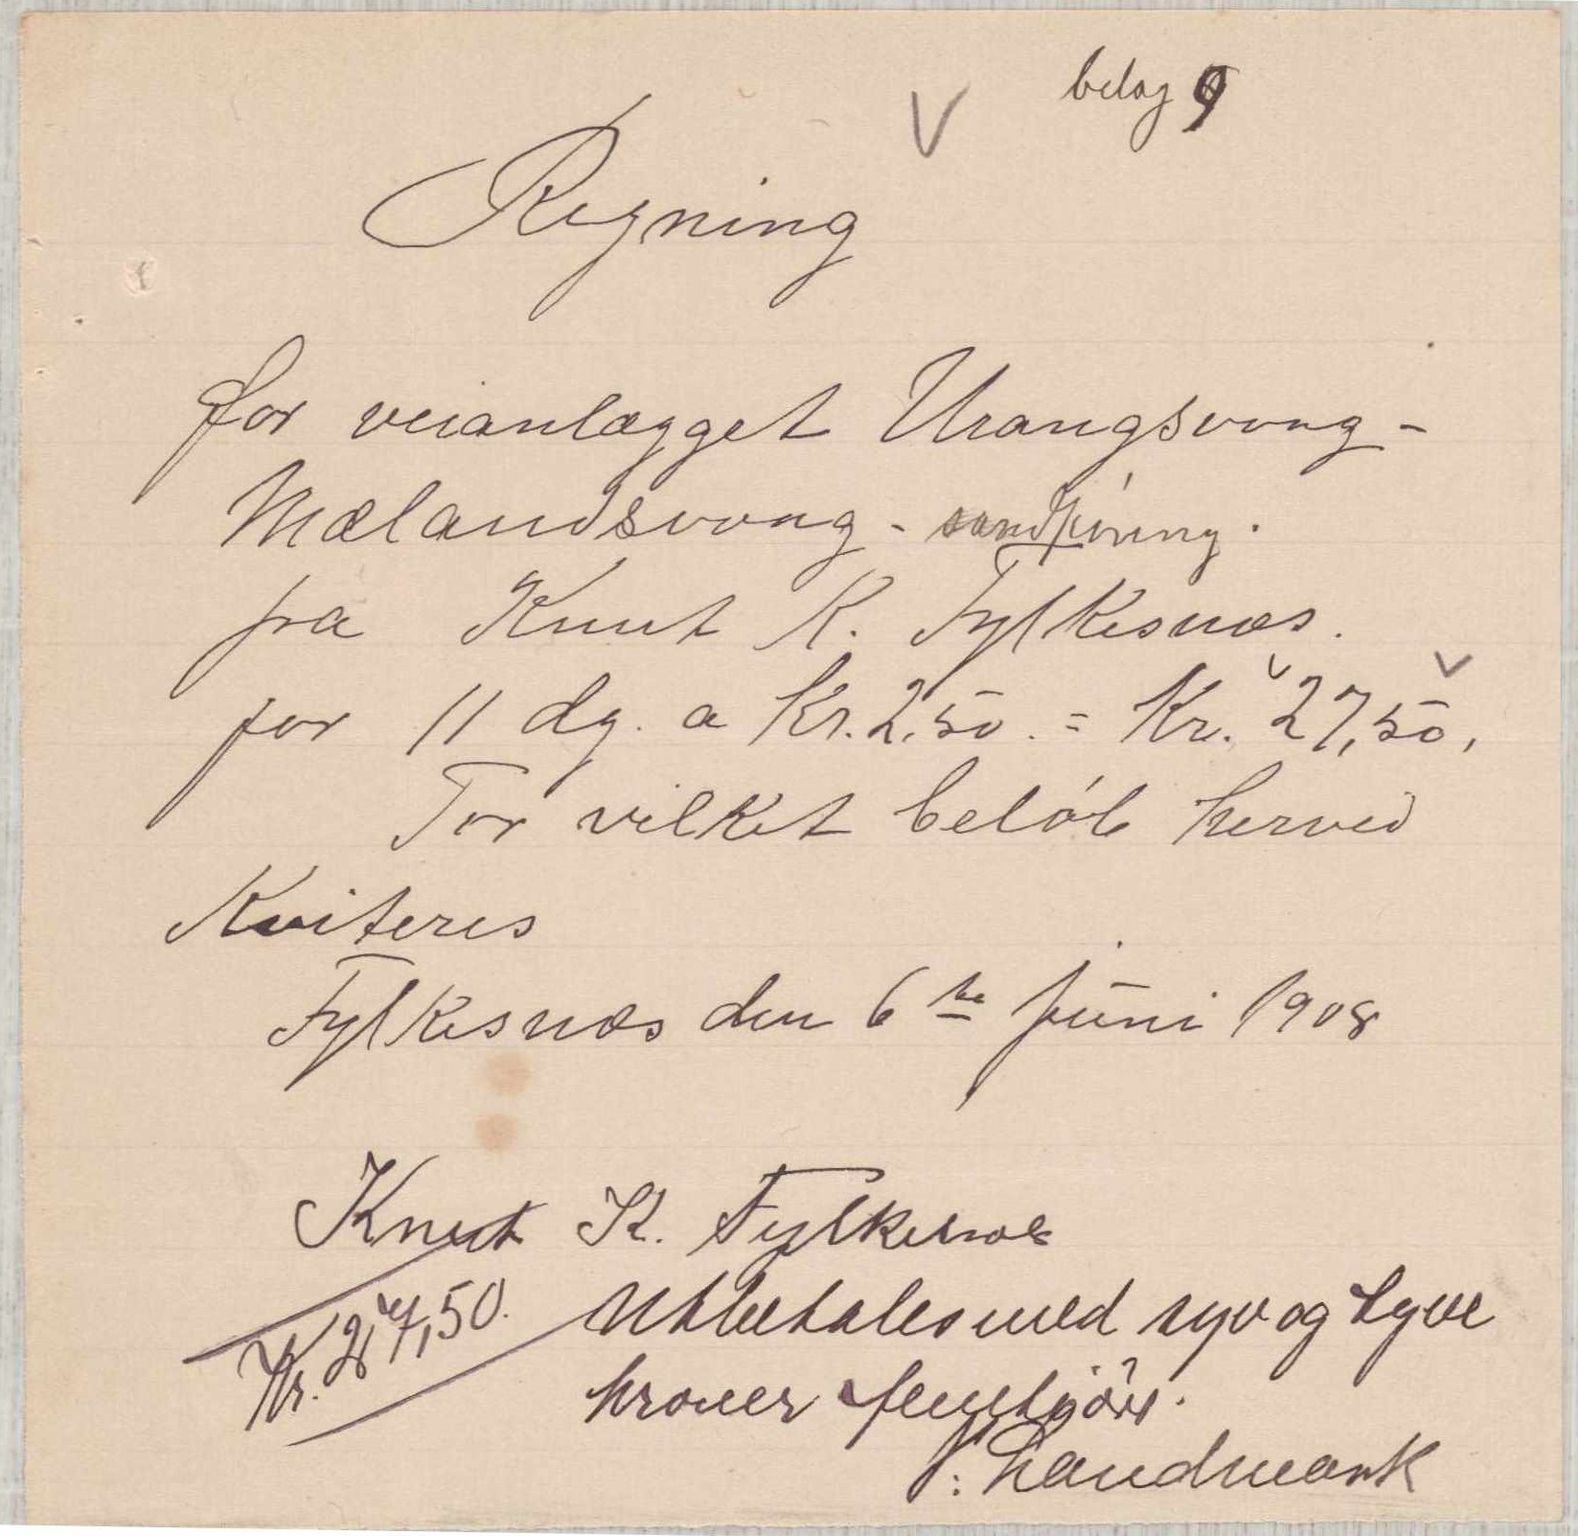 belag 9
V
Regning
for veianlægget Urangsvaag -
Mælandsvaag - sandkjöring.
fra Knut K. Fylkesnæs.
for 11 dg. a Kr. 2,50. = Kr. 27,50,
For vilket belöb herved
Kviteres
Fylkesnæs den 6te juni 1908
Knut K. Fylkesnæs
Kr. 27,50.
Utbetales med syv og tyve
kroner femtiöre.
Landmark